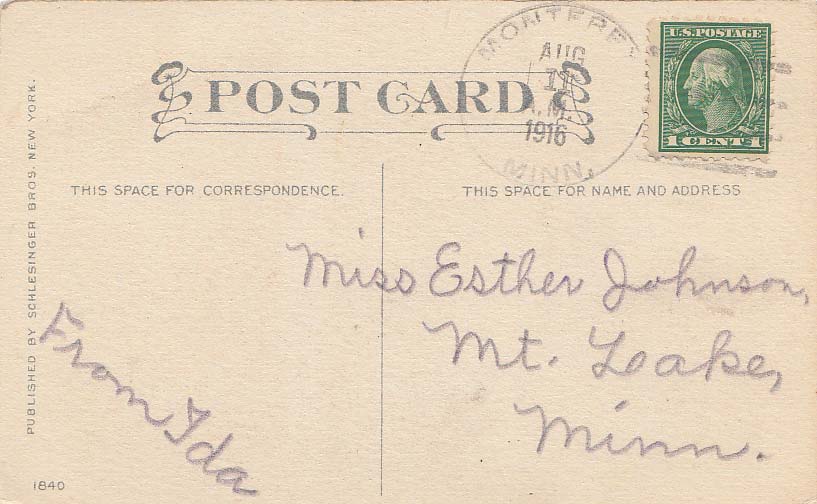 MONTEREY
AUG
11
A.M.
1916
MINN.
U.S. POSTAGE
1 CENT 1
POST CARD
THIS SPACE FOR CORRESPONDENCE.
THIS SPACE FOR NAME AND ADDRESS
PUBLISHED BY SCHLESINGER BROS. NEW YORK.
Miss Esther Johnson,
Mt. Lake,
Minn.
From Ida
1840